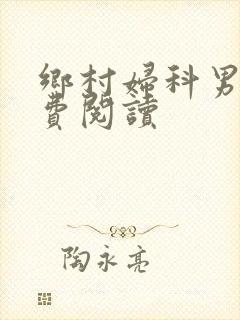 鄉村婦科男
費閱讀
陶永亮